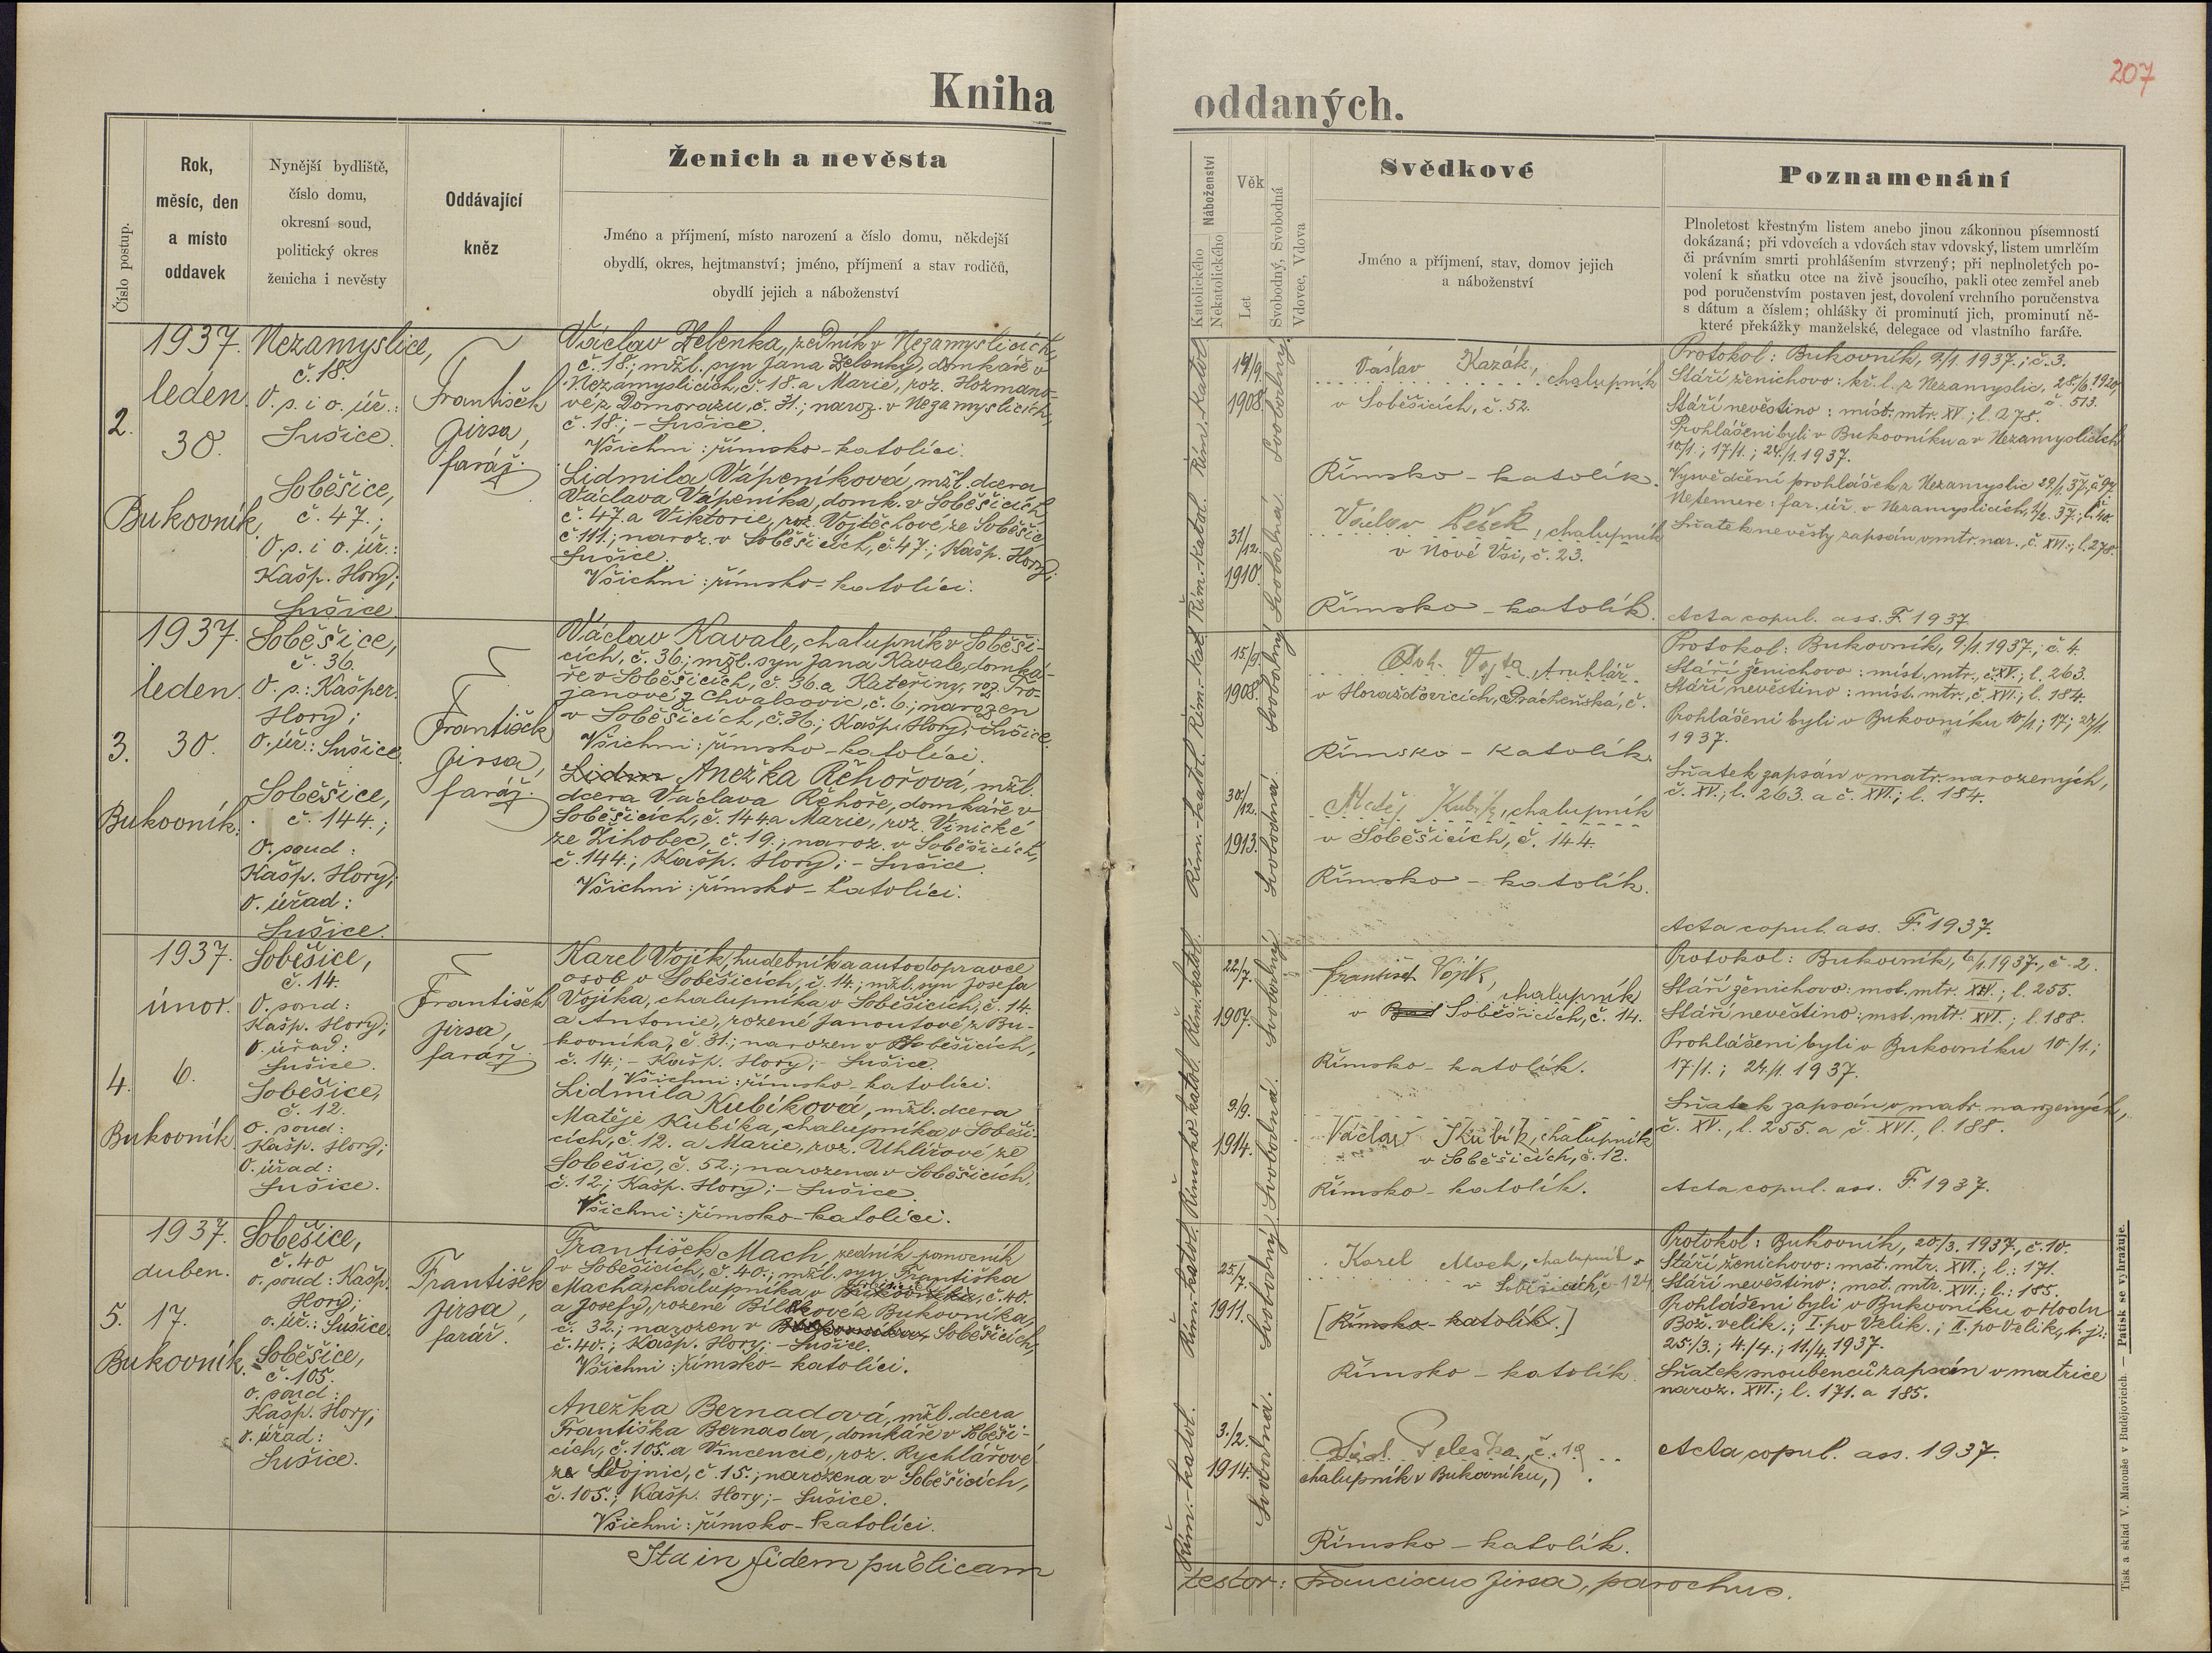 207
Kniha
oddaných.
Číslo postup.
Rok,
měsíc, den
a místo
oddavek
Nynější bydliště,
číslo domu,
okresní soud,
politický okres
ženicha i nevěsty
Oddávající
kněz
Ženich a nevěsta
Jméno a příjmení, místo narození a číslo domu, někdejší
obydlí, okres, hejtmanství; jméno, příjmení a stav rodičů,
obydlí jejich a náboženství
Náboženství
Katolického
Nekatolického
Věk
Let
Svobodný, Svobodná
Vdovec, Vdova
Svědkové
Jméno a příjmení, stav, domov jejich
a náboženství
Poznamenání
Plnoletost křestným listem anebo jinou zákonnou písemností
dokázaná; při vdovcích a vdovách stav vdovský, listem umrlčím
či právním smrti prohlášením stvrzený; při neplnoletých po-
volení k sňatku otce na živě jsoucího, pakli otec zemřel aneb
pod poručenstvím postaven jest, dovolení vrchního poručenstva
s dátum a číslem; ohlášky či prominutí jich, prominutí ně-
které překážky manželské, delegace od vlastního faráře.
2.
1937.
leden.
30.
Bukovník.
Nezamyslice,
č. 18.
O. s. i o. úř.:
Sušice.
Soběšice,
č. 47.;
O. s. i o. úř.:
Kašp. Hory;
Sušice.
František
Jirsa,
farář.
Václav Zelenka, zedník v Nezamyslicích,
č. 18.; mžl. syn Jana Zelenky, domkáře v
Nezamyslicích, č. 18. a Marie, roz. Hozmano-
vé z Domorazu, č. 31.; naroz. v Nezamyslicích,
č. 18.; - Sušice.
Všichni: římsko-katolíci.
Lidmila Vápeníková, mžl. dcera
Václava Vápeníka, domk. v Soběšicích
č. 47. a Viktorie, roz. Vojtěchové, ze Soběšic
č. 111.; naroz. v Soběšicích, č. 47.; Kašp. Hory;
Sušice.
Všichni: římsko-katolíci.
Řím.-katol.
Řím.-katol.
1908.
31./12.
1910.
Svobodný.
Svobodná.
Václav Kazák,
chalupník
v Soběšicích, č. 52.
Římsko-katolík.
Pešek, chalupník
v Nové Vsi, č. 23.
Římsko-katolík.
Protokol: Bukovník, 9./1. 1937.; č. 3.
Stáří ženichovo: kř. l. z Nezamyslic. 28./6. 1920,
č. 513.
Stáří nevěstino: míst. mtr. XV.; l. 278.
Prohlášeni byli v Bukovníku a v Nezamyslicích
10/1.; 17/1.; 24./1. 1937.
Vysvědčení prohlášek z Nezamyslic
Netemere: far. úř. v Nezamyslicích,
Sňatek nevěsty zapsán v mtr. nar., č. XVI.; l. 278.
Acta copul. ass. F. 1937
3.
1937.
leden.
30.
Bukovník.
Soběšice,
č. 36.
O. s.: Kašper.
Hory;
O. úř.: Sušice.
Soběšice,
č. 144.;
O. soud:
Kašp. Hory;
O. úřad:
Sušice.
František
Jirsa,
farář.
Václav Kavale, chalupník v Soběši-
cích, č. 36.; mžl. syn Jana Kavale, domká-
ře v Soběšicích, č. 36. a Kateřiny, roz. Tro-
janové z Chvalšovic, č. 6.; narozen
v Soběšicích, č. 36.; Kašp. Hory; - Sušice.
Všichni: římsko-katolíci.
Lidm Anežka Řehořová, mžl.
dcera Václava Řehoře, domkáře v
Soběšicích, č. 144. a Marie, roz. Vinické
ze Žihobec, č. 19.; naroz. v Soběšicích,
č. 144.; Kašp. Hory; - Sušice.
Všichni: římsko-katolíci.
Řím.-katol.
Řím.-kat.
15./9.
1908.
30./12.
1913.
Svobodný
Svobodná.
Vojta, truhlář
v Horažďovicích, Prácheňská, č.
Římsko-katolík.
Matěj Kubík, chalupník
v Soběšicích, č. 144.
Římsko-katolík.
Protokol: Bukovník, 9./1. 1937.; č. 4.
Stáří ženichovo: míst. mtr., č. XV.; l. 263.
Stáří nevěstino: míst. mtr., č. XVI.; l. 184.
Prohlášeni byli v Bukovníku 10./1.; 17.; 24/1.
1937.
Sňatek zapsán v matr. narozených,
č. XV.; l. 263. a č. XVI.; l. 184.
Acta copul. ass. F. 1937.
4.
1937.
únor.
6.
Bukovník.
Soběšice,
č. 14.
O. soud:
Kašp. Hory;
O. úřad:
Sušice.
Soběšice,
č. 12.
O. soud:
Kašp. Hory;
O. úřad:
Sušice.
František
Jirsa,
farář.
Karel Vojík, hudebník a autodopravce
osob v Soběšicích, č. 14.; mžl. syn Josefa
Vojíka, chalupníka v Soběšicích, č. 14.
a Antonie, rozené Janoutové, z Bu-
kovníka, č. 31.; narozen v Soběšicích,
č. 14.; - Kašp. Hory; - Sušice.
Všichni: římsko-katolíci.
Lidmila Kubíková, mžl. dcera
Matěje Kubíka, chalupníka v Soběši-
cích, č. 12. a Marie, roz. Uhlířové, ze
Soběšic, č. 52.; narozena v Soběšicích.
č. 12.; Kašp. Hory; - Sušice.
Všichni: římsko-katolíci.
Římsko katol.
Řím.-katol.
22/7.
1907.
9./9.
1914.
Svobodný
Svobodná.
František Vojík,
chalupník
v Soběšicích, č. 14.
Římsko-katolík.
Václav Kubík, chalupník
v Soběšicích, č. 12.
Římsko-katolík.
Protokol: Bukovník, 6/1. 1937., č. 2.
Stáří ženichovo: mst. mtr. XV.; l. 255.
Stáří nevěstino: mst. mtr. XVI.; l. 188.
Prohlášeni byli v Bukovníku 10./1.;
17/1.; 24./1. 1937.
Sňatek zapsán v matr. narozených,
č. XV., l. 255. a č. XVI., l. 188.
Acta copul. ass. F. 1937.
5.
1937.
duben.
17.
Bukovník.
Soběšice,
č. 40
o. soud: Kašp.
Hory;
o. úř.: Sušice.
Soběšice,
č. 105.
o. soud:
Kašp. Hory;
o. úřad:
Sušice.
František
Jirsa,
farář.
František Mach, zedník-pomocník
v Soběšicích, č. 40.; mžl. syn Františka
Macha, chalupníka v Bukovníku, č. 40.
a Josefy, rozené Bílkové z Bukovníka,
č. 32.; narozen v Soběšicích,
č. 40.; Kašp. Hory; - Sušice.
Všichni: římsko-katolíci.
Anežka Bernadová, mžl. dcera
Františka Bernada, domkáře v Soběši-
cích, č. 105. a Vincencie, roz. Rychlářové
ze Stojnic, č. 15.; narozena v Soběšicích,
č. 105.; Kašp. Hory; - Sušice.
Všichni: římsko-katolíci.
Řím.-katol.
Řím.-katol.
25./7.
1911.
3./2.
1914.
Svobodný
Svobodná.
Karel Mach, chalupník
v Soběšicích č. 124
[Římsko-katolík.]
Římsko-katolík
č. 19
chalupník v Bukovníku,
Římsko-katolík.
Protokol: Bukovník, 20/3. 1937., č. 10.
Stáří ženichovo: mst. mtr. XVI.; l.: 171.
Stáří nevěstino: mst. mtr. XVI.; l.: 185.
Prohlášeni byli v Bukovníku o Hodu
Bož. velik.; I. po Velik.; II. po Velik., t. j.:
25./3.; 4./4.; 11./4. 1937.
Sňatek snoubenců zapsán v matrice
naroz. XVI.; l. 171. a 185.
Acta copul. ass. 1937.
Ita in fidem publicam
testor: Franciscus Jirsa, parochus.
Tisk a sklad V. Matouše v Budějovicích. — Patisk se vyhražuje.